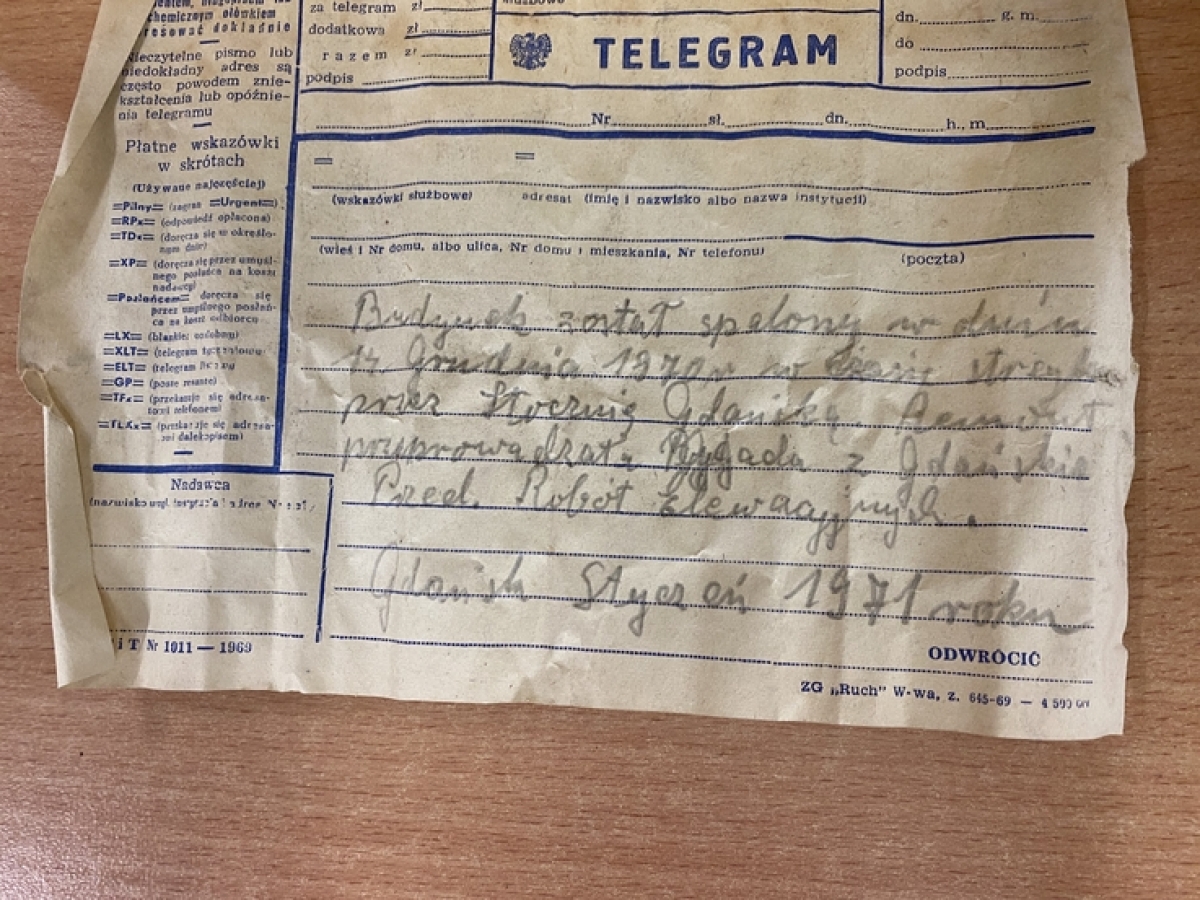 chemicznym ołówkiem
resować dokładnie
Nieczytelne pismo lub
niedokładny adres są
często powodem znie-
kształcenia lub opóźnie-
nia telegramu
Płatne wskazówki
w skrótach
(Używane najczęściej)
=Pilny= (zagran =Urgent=)
=RPx= (odpowiedź opłacona)
=TDx= (doręcza się w określo-
nym dniu)
=XP= (doręcza się przez umyśl-
nego posłańca na koszt
nadawcy)
=Posłańcem= doręcza się
przez umyślnego posłań-
ca na koszt odbiorcy
=LX= (blankiet ozdobny)
=XLT= (telegram
=ELT= (telegram
=GP= (poste restante)
=TFx= (przekazuje się adresa-
towi telefonem)
=TLXx= (przekazuje się adresa-
towi dalekopisem)
za telegram zł
dodatkowa zł
razem zł
podpis
TELEGRAM
dn. g. m.
do
podpis
Nr sł. dn. h., m
= =
(wskazówki służbowe) adresat (imię i nazwisko albo nazwa instytucji)
(wieś i Nr domu, albo ulica, Nr domu i mieszkania, Nr telefonu) (poczta)
Budynek został spalony w dniu
14 Grudnia 1970 r w czasie
przez Stocznię Gdańską. Remont
przyprowadzała Brygada z Gdańskie
Przed. Robót Elewacyjnych.
Gdańsk Styczeń 1971 roku
Nadawca
i T Nr 1011 — 1969
ODWRÓCIĆ
ZG „Ruch" W-wa, z. 645-69 — 4 500